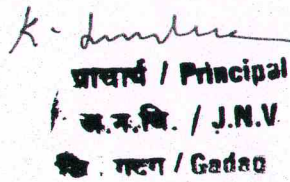 प्राचार्य / Principal
ज.न.वि. / J.N.V
गदग / Gadag